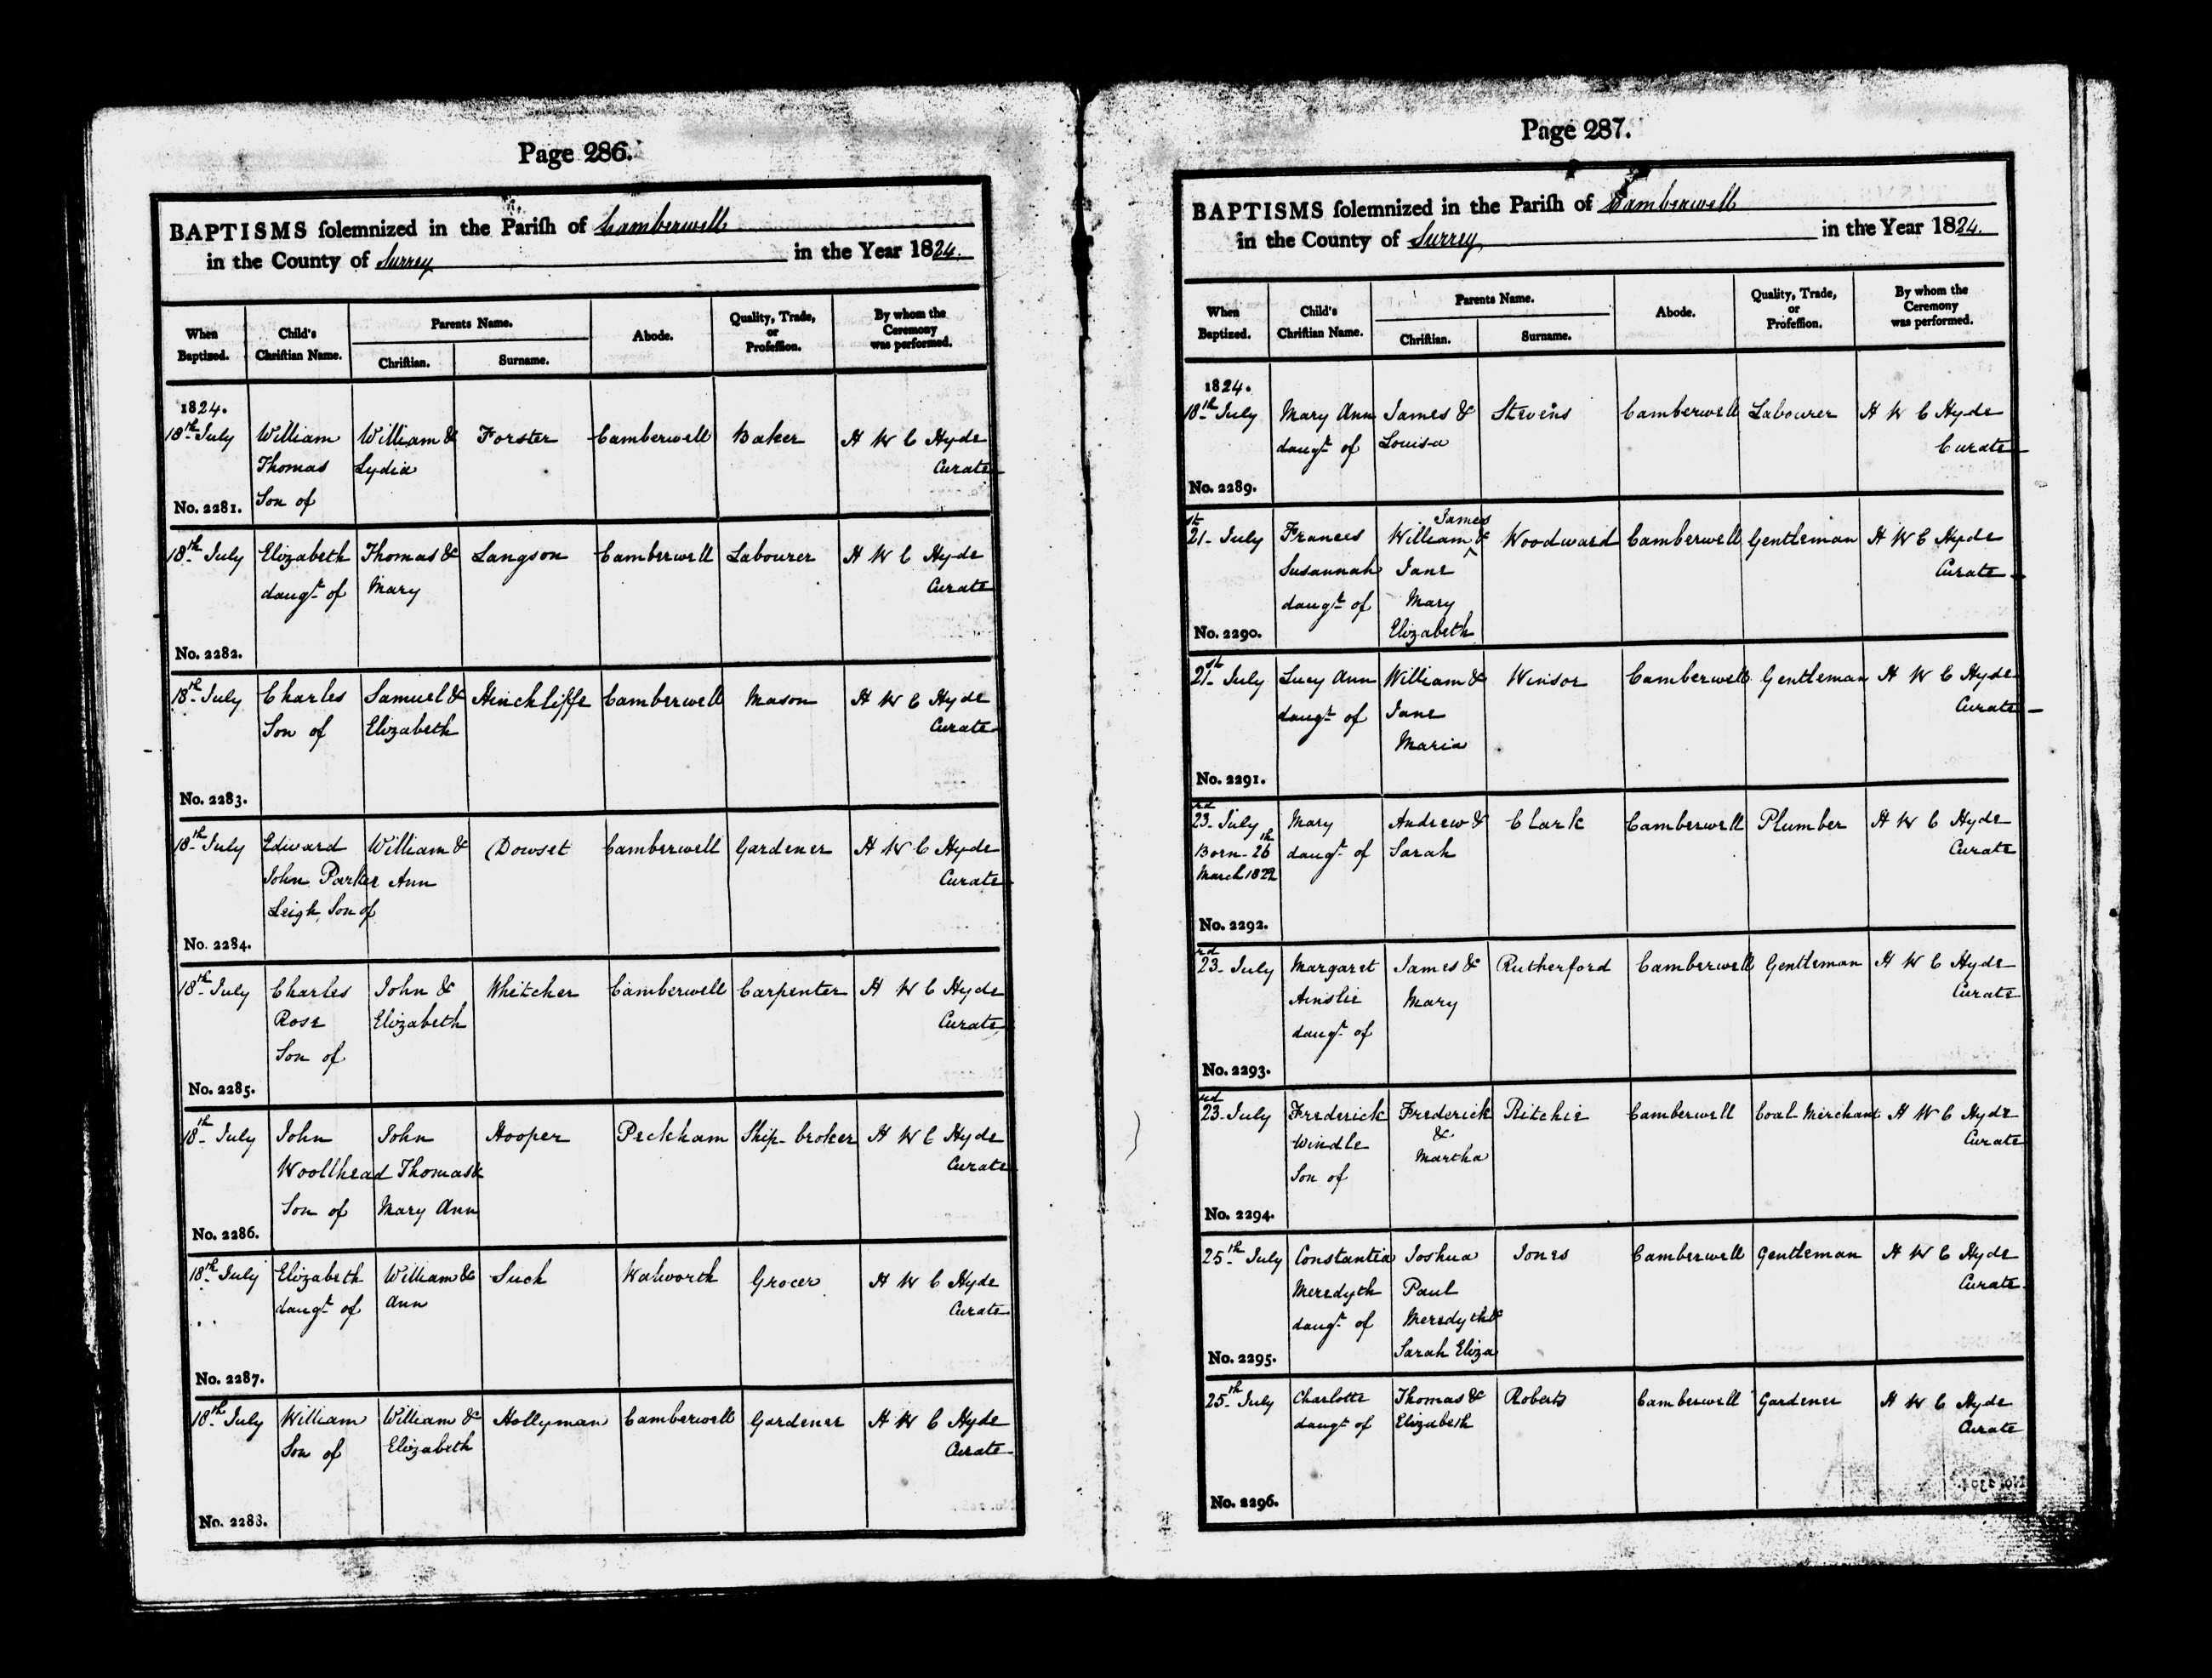 Page 286.
BAPTISMS ſolemnized in the Pariſh of Camberwell
in the County of Surrey in the Year 1824.
When Baptized.
Child's Chriſtian Name.
Parents Name.
Chriſtian.
Surname.
Abode.
Quality, Trade, or Profeſſion.
By whom the Ceremony was performed.
1824.
18th July William William & Forster Camberwell Baker H W C Hyde
Thomas Lydia Curate
No. 2281. Son of
18th July Elizabeth Thomas & Langson Camberwell Labourer H W C Hyde
daugt of Mary Curate
No. 2282.
18th July Charles Samuel & Hinchliffe Camberwell Mason H W C Hyde
Son of Elizabeth Curate
No. 2283.
18th July Edward William & Dowset Camberwell Gardener H W C Hyde
John Parker Ann Curate
Leigh, Son of
No. 2284.
18th July Charles John & Whitcher Camberwell Carpenter H W C Hyde
Rose Elizabeth Curate
Son of
No. 2285.
18th July John John Hooper Peckham Ship-broker H W C Hyde
Woollhead Thomas & Curate
Son of Mary Ann
No. 2286.
18th July Elizabeth William & Such Walworth Grocer H W C Hyde
daugt of Ann Curate
No. 2287.
18th July William William & Hollyman Camberwell Gardener H W C Hyde
Son of Elizabeth Curate
No. 2288.
Page 287.
BAPTISMS ſolemnized in the Pariſh of Camberwell
in the County of Surrey in the Year 1824.
When Baptized.
Child's Chriſtian Name.
Parents Name.
Chriſtian.
Surname.
Abode.
Quality, Trade, or Profeſſion.
By whom the Ceremony was performed.
1824.
18th July Mary Ann James & Stevens Camberwell Labourer H W C Hyde
daugt of Louisa Curate
No. 2289.
James
21st July Frances William & Woodward Camberwell Gentleman H W C Hyde
Susannah Jane Curate
daugt of Mary
No. 2290. Elizabeth
21st July Lucy Ann William & Winsor Camberwell Gentleman H W C Hyde
daugt of Jane Curate
Maria
No. 2291.
23rd July Mary Andrew & Clark Camberwell Plumber H W C Hyde
Born 26th daugt of Sarah Curate
March 1822
No. 2292.
23rd July Margaret James & Rutherford Camberwell Gentleman H W C Hyde
Ainslie Mary Curate
daugt of
No. 2293.
23rd July Frederick Frederick Ritchie Camberwell Coal Merchant H W C Hyde
Windle & Curate
Son of Martha
No. 2294.
25th July Constantia Joshua Jones Camberwell Gentleman H W C Hyde
Meredyth Paul Curate
daugt of Meredyth &
No. 2295. Sarah Eliza
25th July Charlotte Thomas & Roberts Camberwell Gardener H W C Hyde
daugt of Elizabeth Curate
No. 2296.